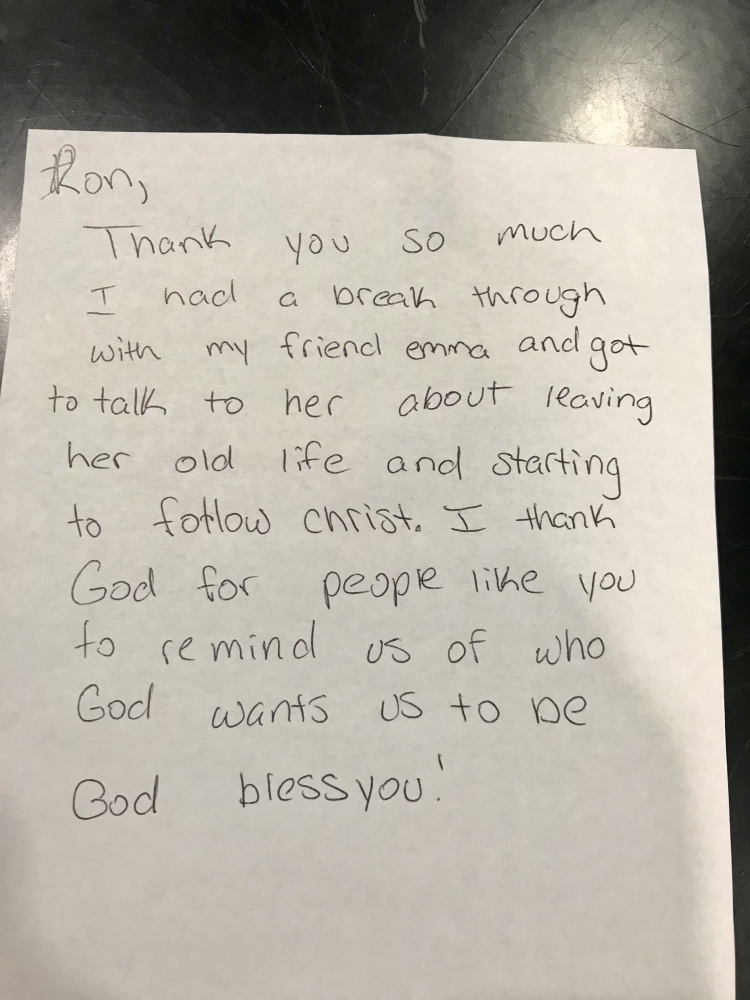 Ron,
Thank you so much
I had a break through
with my friend emma and got
to talk to her about leaving
her old life and starting
to follow christ. I thank
God for people like you
to remind us of who
God wants us to be
God bless you!